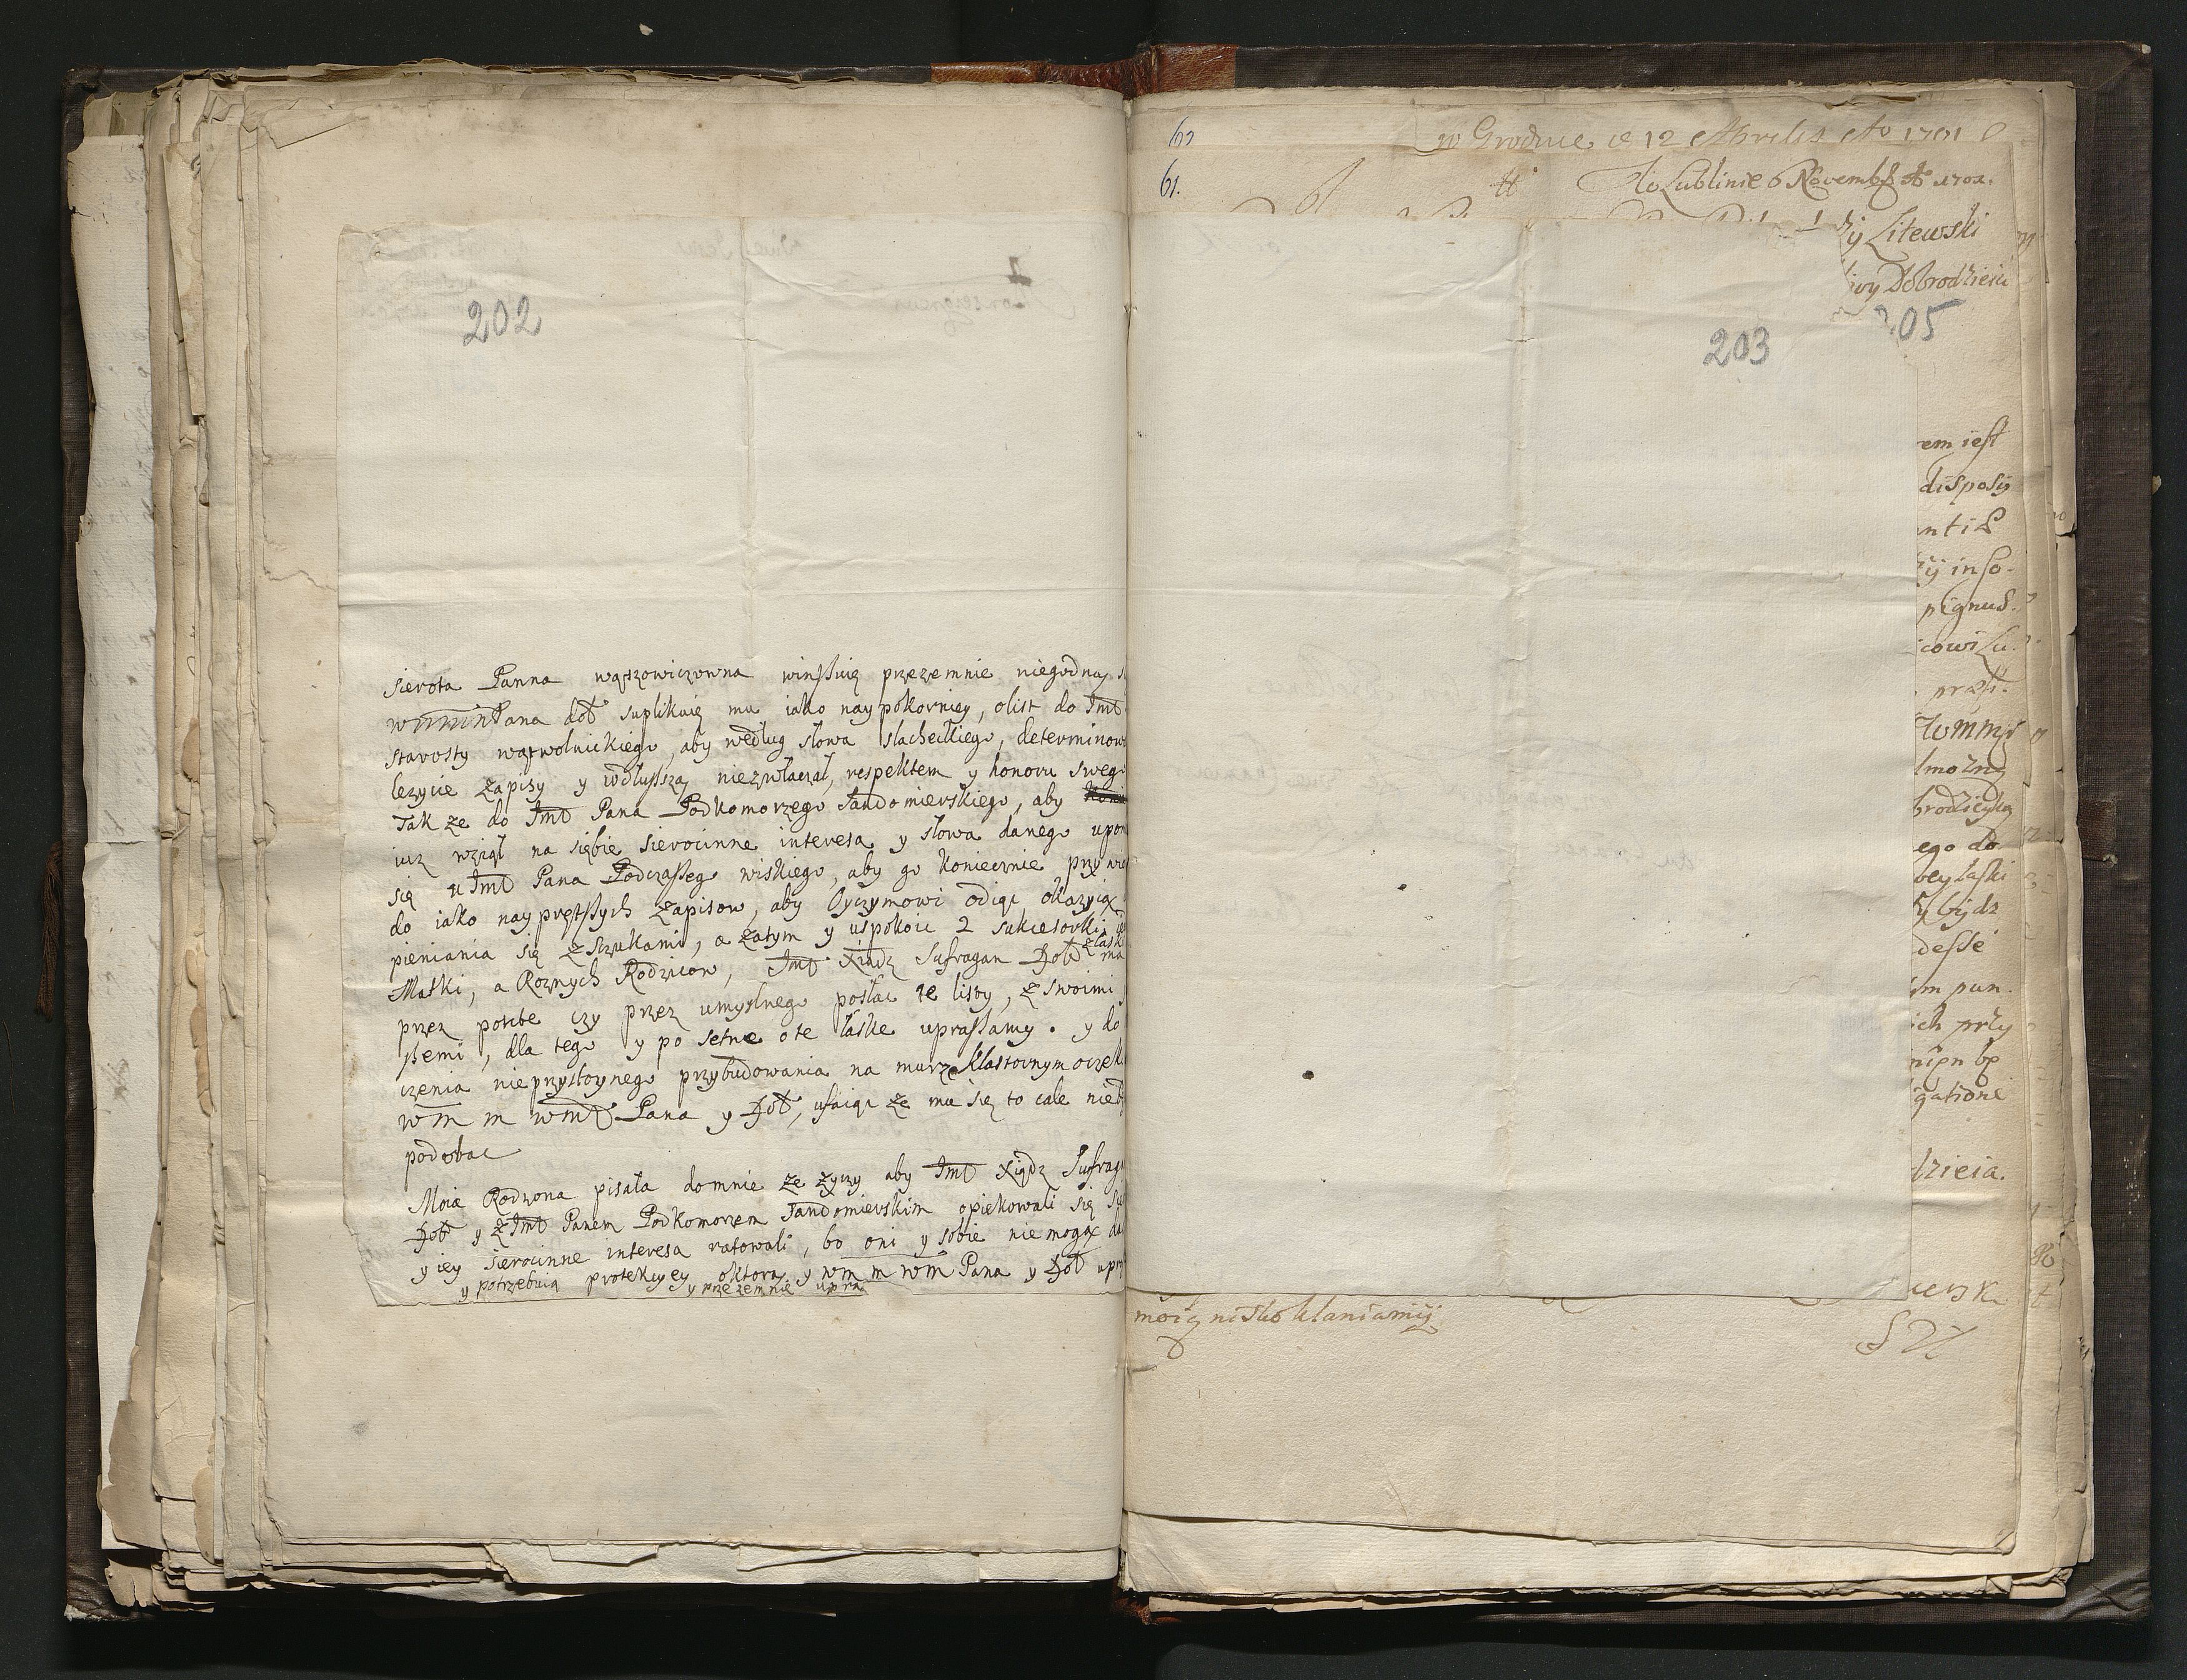 202
sierota Panna wąszowiczowna winssuię przezemnie niegodną
dob suplikuię mu iako naypokorniey, olist do Jmb
starosty wąwolnickiego, aby według słowa slacheckiego, determinow
lezycie zapisy y wdłuszszą niezwłaczał, respektem y honoru sweg
Tak ze do Jmb Pana Podkomorzego Sandomierskiego, aby
iuz wziął na siębie sierocinne interesa y słowa danego upom
się u Jmb Pana Podczassego wiskiego, aby go koniecznie przywi
do iako nayprętssych zapisow, aby Oyczymowi odiąc okazyią
pieniania się z sztukami, a zatym y uspokoic 2 sukcesorki
Matki, a Roznych Rodzicow, Jmb Xiądz Sufragan Dob z łaski
przez potcbe czy przez umyslnego posłac te listy, z swoimi
ssemi, dla tego y po setne o te łaske uprassamy. y do
czenia nieprzystoynego przybudowania na murze klastornym oczek
wm m wmb Pana y Dob, ufaiąc ze mu się to cale nieb
podobac
Moia Rodzona pisała domnie ze zyczy aby Jmb Xiądz Sufrag
Dob y z Jmb Panem Podkomorzem Sandomierskim opiekowali się
y iey sierocinne interesa ratowali, bo oni y sobie niemogą
y potrzebuią protekcyey oktorą y wm m wm Pana y Dob upr
y przezemnie upra
61.
w Grodnie d 12 Aprilis Ao 1701
Lublinie 6 Novembr Ao 1702.
y Litewski
Dobrodzieiu
203
205
em iest
disposy
nti
y inso-
pignus.
cowi Lu.
możną
brodzieyką
ego do
ey łaski
y bydz
desse
m pun.
ich przy
gatione
dzieia.
moią nisko kłaniamy